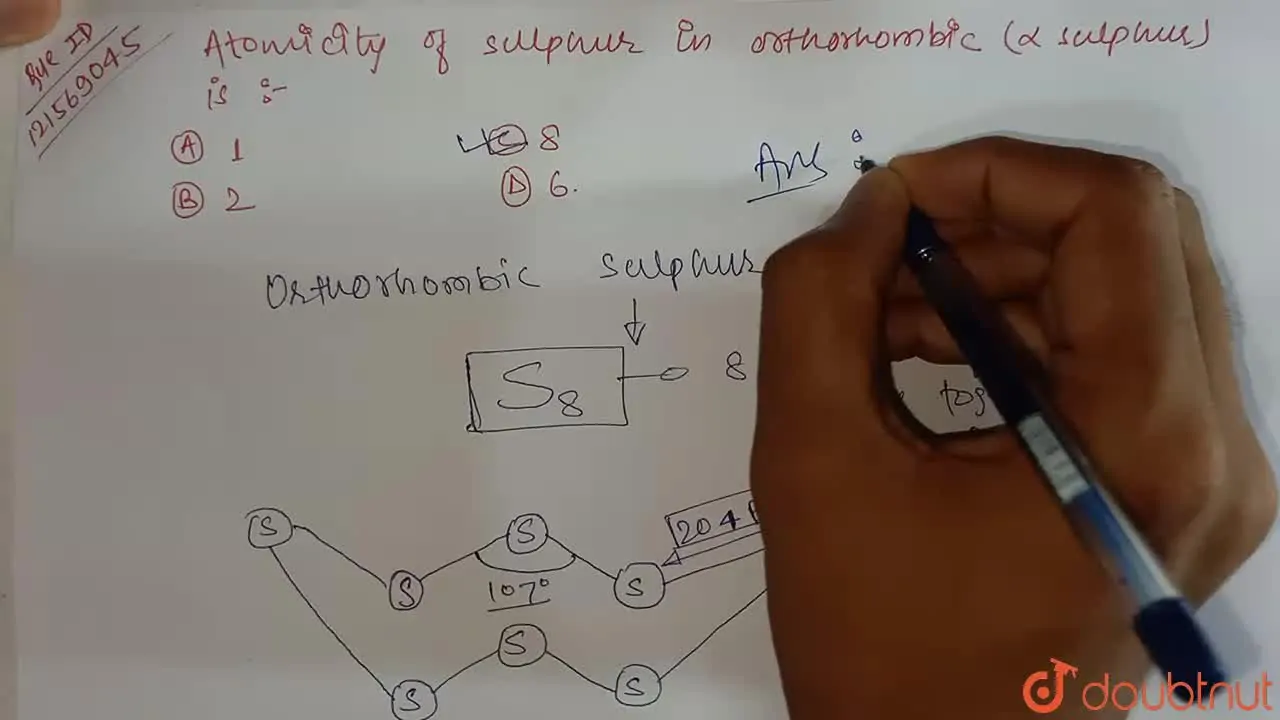 Que ID
121569045
Atomicity of sulphur in orthorhombic (α sulphur)
is :-
(A) 1
(C) 8
(B) 2
(D) 6.
Ans :
Orthorhombic sulphur
S8
8
tog
S
S
S
S
204
107°
S
S
S
doubtnut